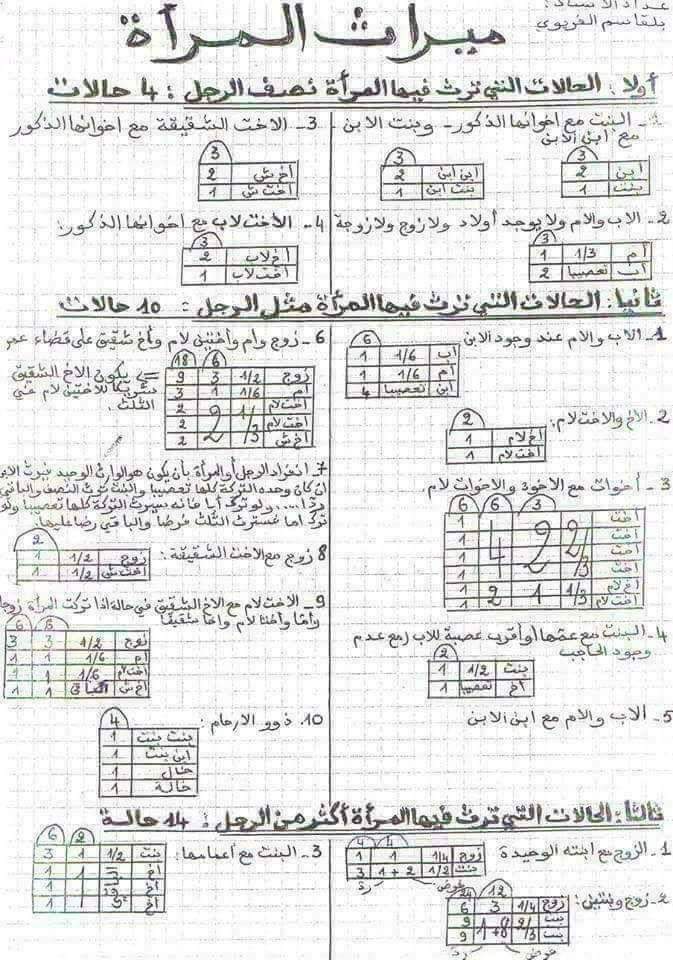 عداد الأستاذ:
بلقاسم الغريوي
ميراث المرأة
أولا: الحالات التي ترث فيها المرأة نصف الرجل: 4 حالات
1- البنت مع اخوانها الذكور - وبنت الابن
مع ابن الابن
3
ابن 2
بنت 1
3
ابن ابن 2
بنت ابن 1
2- الاب والام ولا يوجد أولاد ولا زوج ولا زوجة
3
أم 1/3 1
أب تعصيبا 2
3- الاخت الشقيقة مع اخوانها الذكور
3
أخ ش 2
أخت ش 1
4- الأخت لاب مع اخوانها الذكور:
3
أخ لاب 2
أخت لاب 1
ثانيا: الحالات التي ترث فيها المرأة مثل الرجل: 10 حالات
1- الاب والام عند وجود الابن
6
أب 1/6 1
أم 1/6 1
ابن تعصيبا 4
2- الأخ والاخت لام:
2
أخ لام 1
أخت لام 1
3- أخوات مع الاخوة والاخوات لام
3 6 6
أخت 2/3 2 4 1
أخت 1
أخت 1
أخت 1
أخ لام 1/3 1 2 1
أخت لام 1
4- البنت مع عمها أو أقرب عصبة للاب (مع عدم
وجود الحاجب
2
بنت 1/2 1
أخ تعصيبا 1
5- الاب والام مع ابن الابن
6- زوج وأم وأختين لام وأخ شقيق على قضاء عمر
6 18
زوج 1/2 3 9
أم 1/6 1 3
أخت لام 1/3 2 2
أخت لام 2
أخ ش 2
يكون الاخ الشقيق
شريكا للاختين لام في
الثلث.
7- انفراد الرجل أو المرأة بأن يكون هو الوارث الوحيد فيرث الابن
ان كان وحده التركة كلها تعصيبا والبنت ترث النصف والباقي
ردا .... ولو ترك أبا فانه سيرث التركة كلها تعصيبا ولو
ترك أما فسترث الثلث فرضا والباقي رضا عليها.
8 زوج مع الاخت الشقيقة:
2
زوج 1/2 1
أخت ش 1/2 1
9- الاخت لام مع الاخ الشقيق في حالة اذا تركت المرأة زوجا
وأما وأختا لام وأخا شقيقا
6 6
زوج 1/2 3 3
أم 1/6 1 1
أخت لام 1/6 1 1
أخ ش الباقي 1 1
10. ذوو الارحام:
4
بنت بنت 1
ابن بنت 1
خال 1
خالة 1
ثالثا: الحالات التي ترث فيها المرأة أكثر من الرجل: 14 حالة
1- الزوج مع ابنته الوحيدة
4 4
زوج 1/4 1 1
بنت 1/2 2+1 3
فرض رد
2- زوج وبنتين:
12 24
زوج 1/4 3 6
بنت 2/3 8+1 9
بنت 9
فرض رد
3- البنت مع أعمامها:
2 6
بنت 1/2 1 3
أخ 1 1
أخ 1
أخ 1